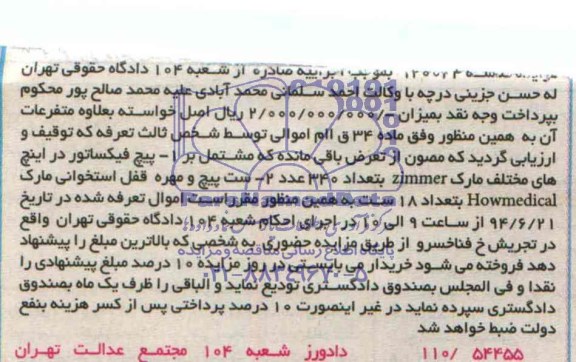 بموجب اجراییه صادره از شعبه ۱۰۴ دادگاه حقوقی تهران
له حسن جزینی درچه با وکالت احمد سلمانی محمد آبادی علیه محمد صالح پور محکوم
بپرداخت وجه نقد بمیزان ۲/۰۰۰/۰۰۰/۰۰۰ ریال اصل خواسته بعلاوه متفرعات
آن به همین منظور وفق ماده ۳۴ ق اام اموالی توسط شخص ثالث تعرفه که توقیف و
ارزیابی گردید که مصون از تعرض باقی مانده که مشتمل بر ۱- پیچ فیکساتور در اینچ
های مختلف مارک zimmer بتعداد ۳۴۰ عدد ۲- ست پیچ و مهره قفل استخوانی مارک
Howmedical بتعداد ۱۸ ست به همین منظور مقرر است اموال تعرفه شده در تاریخ
۹۴/۶/۲۱ از ساعت ۹ الی ۱۰ در اجرای احکام شعبه ۱۰۴ دادگاه حقوقی تهران واقع
در تجریش خ فناخسرو از طریق مزایده حضوری به شخصی که بالاترین مبلغ را پیشنهاد
دهد فروخته می شود خریدار می بایستی در روز مزایده ۱۰ درصد مبلغ پیشنهادی را
نقدا و فی المجلس بصندوق دادگستری تودیع نماید و الباقی را ظرف یک ماه بصندوق
دادگستری سپرده نماید در غیر اینصورت ۱۰ درصد پرداختی پس از کسر هزینه بنفع
دولت ضبط خواهد شد
۱۱۰/ ۵۴۴۵۵ دادورز شعبه ۱۰۴ مجتمع عدالت تهران
پایگاه اطلاع رسانی مناقصه و مزایده